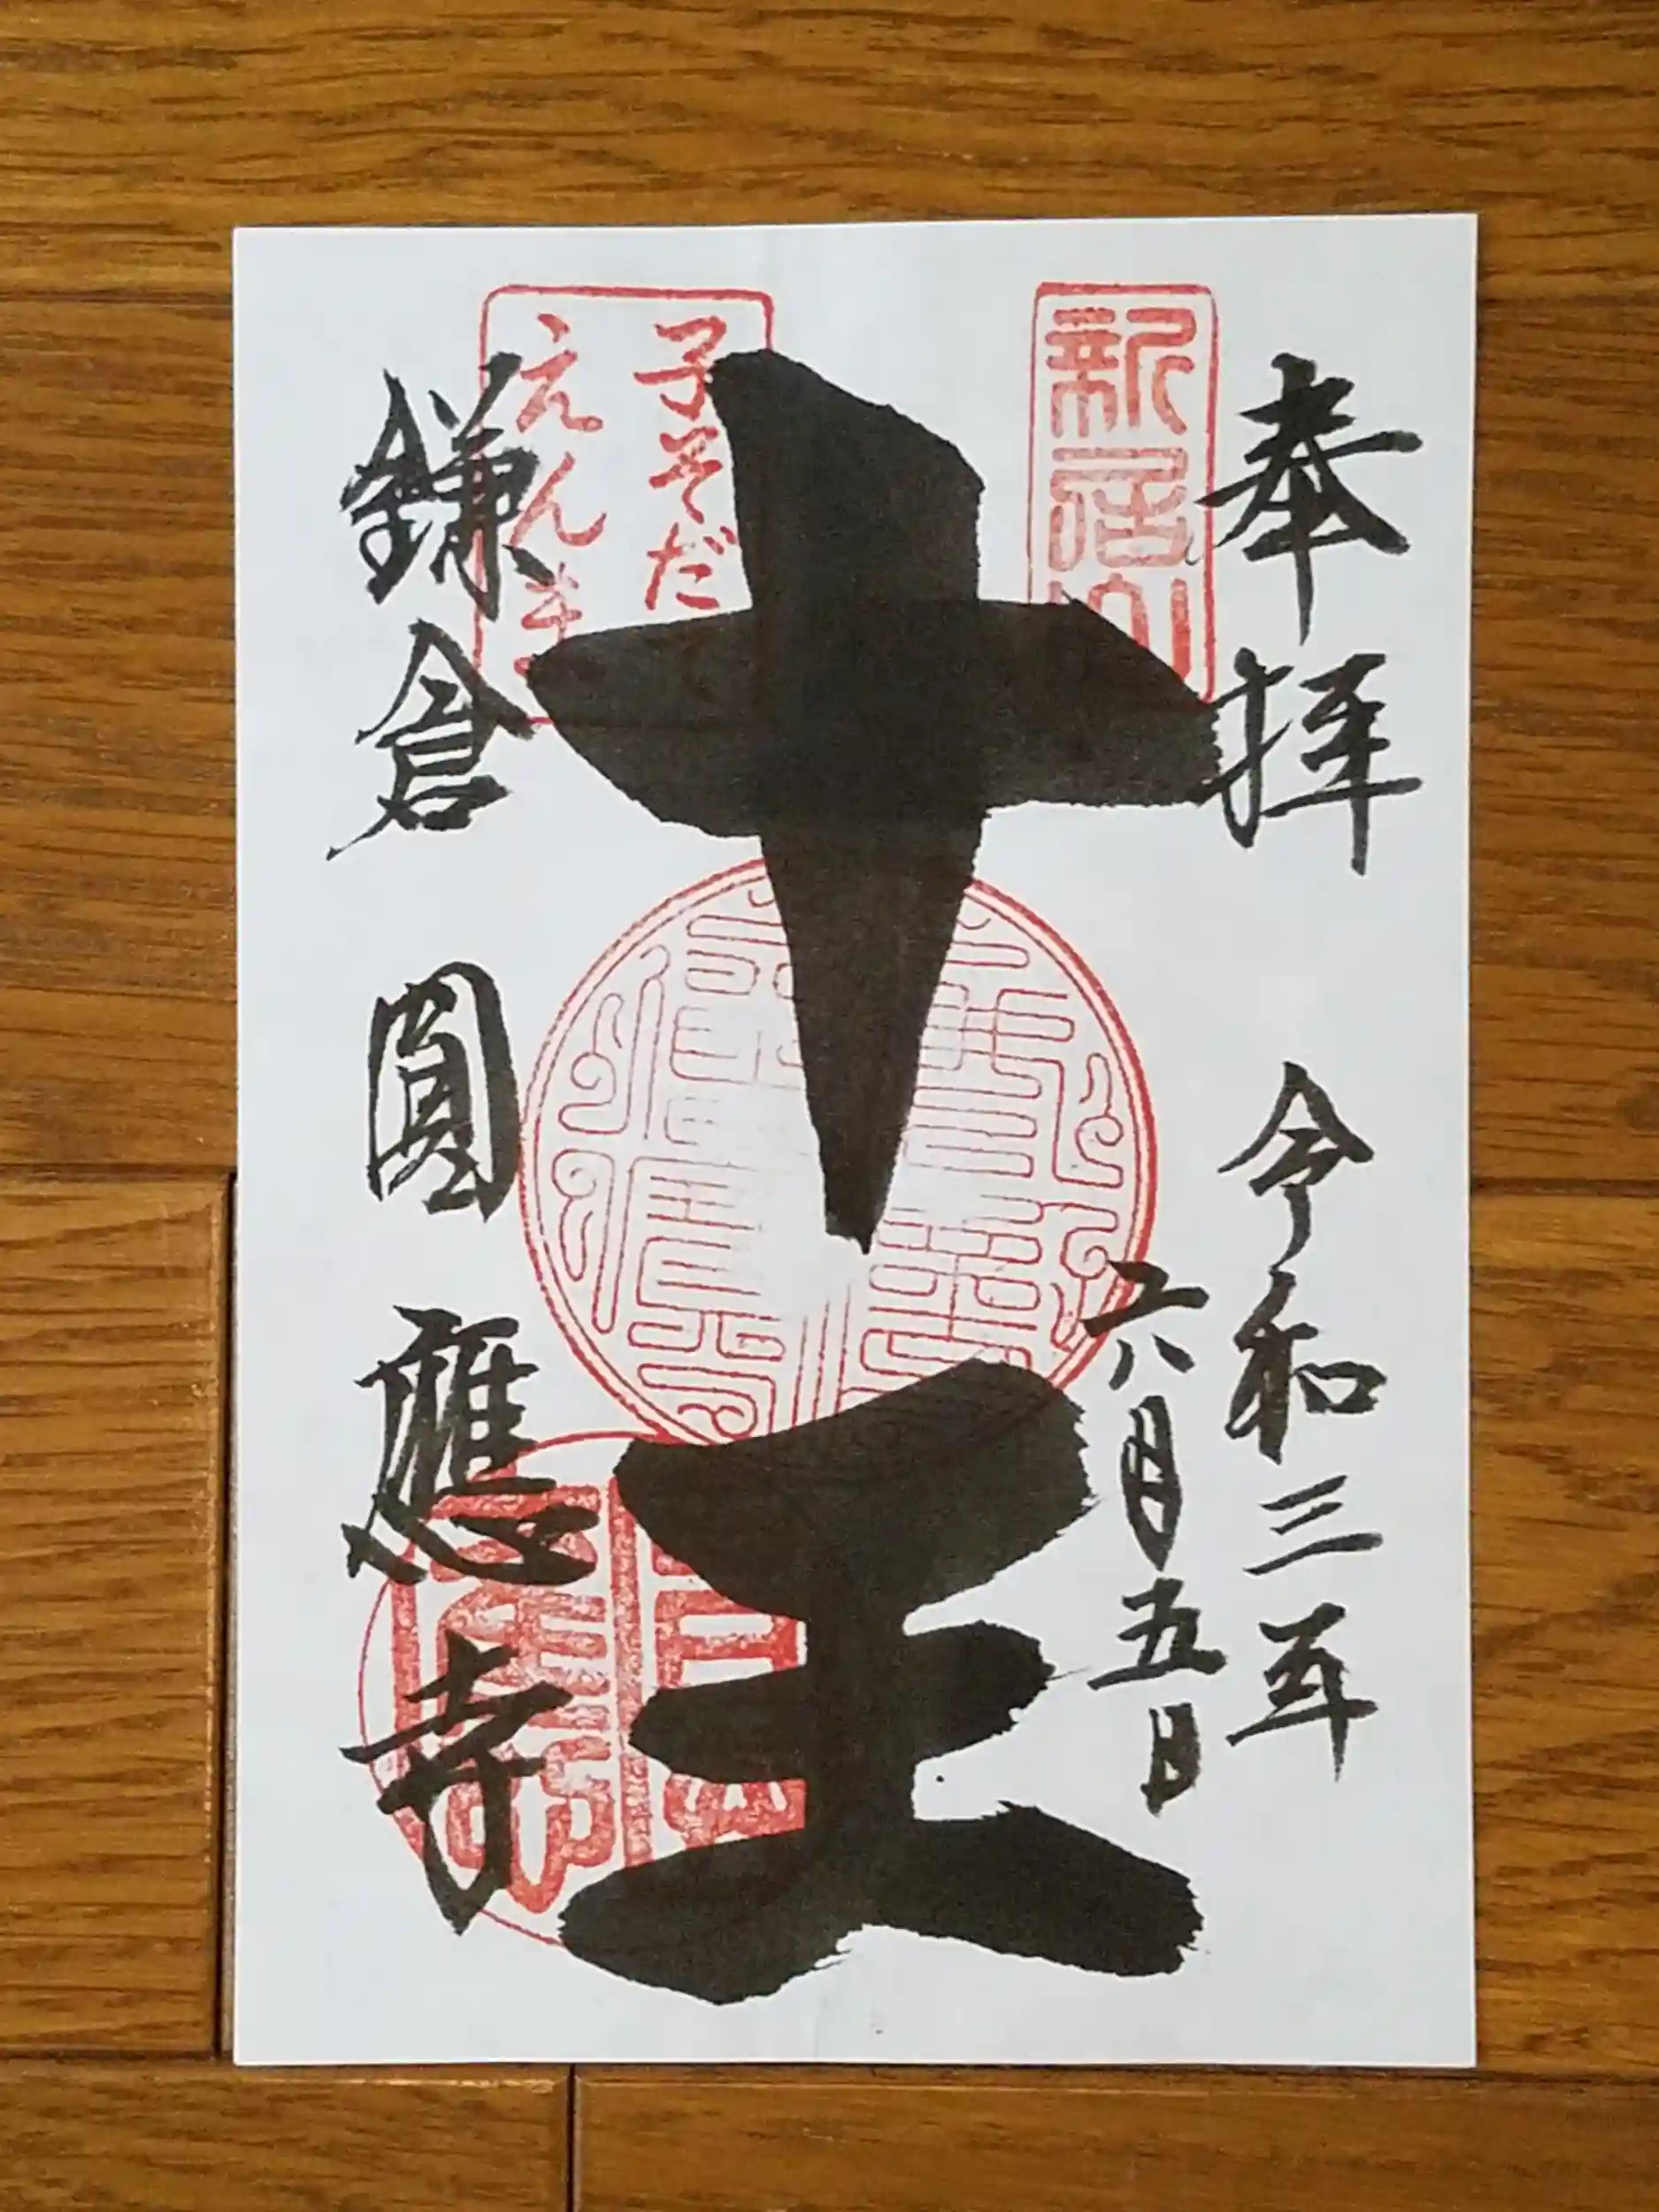 奉拝
令和三年
六月五日
新居山
十王
子そだ
えんま
鎌倉 圓應寺